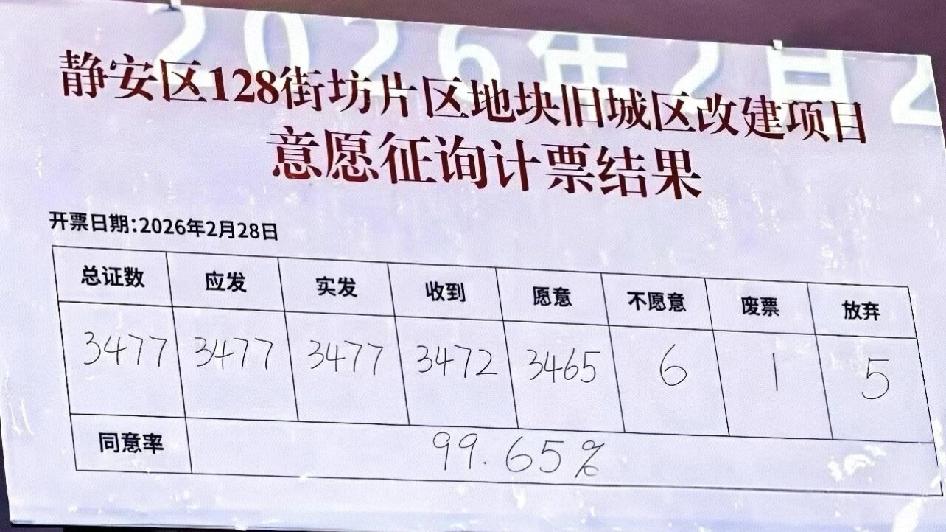 2026年2月2
静安区128街坊片区地块旧城区改建项目
意愿征询计票结果
开票日期:2026年2月28日
总证数 应发 实发 收到 愿意 不愿意 废票 放弃
3477 3477 3477 3472 3465 6 1 5
同意率 99.65%